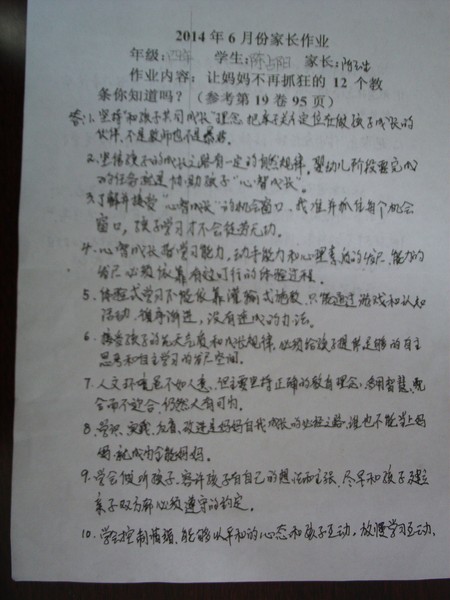 2014年6月份家长作业
年级:四年 学生: 家长:
作业内容:让妈妈不再抓狂的12个教
条你知道吗?(参考第19卷95页)
答:1、坚持和孩子共同成长理念,把亲子关系定位在做孩子成长的
伙伴,不是教师也不是
2、坚信孩子的成长之路有一定的自然规律,婴幼儿阶段要完成
的任务就是协助孩子"心智成长"。
3、了解并接受"心智成长"的机会窗口,找准并抓住每个机会
窗口,孩子学习才不会徒劳无功。
4、心智成长指学习能力、动手能力和心理素质的发展,能力的
发展必须依靠有效可行的体验过程。
5、体验式学习不能依靠灌输式说教,只能通过游戏和认知
活动,循序渐进,没有速成的办法。
6、接受孩子的先天气质和成长规律,必须给孩子提供足够的自主
思考和自主学习的发展空间。
7、人文环境虽不如人意,但主要坚持正确的教育理念,善用智慧,
全面不迎合,仍然大有可为。
8、学识、实践、改进是妈妈自我成长的必经之路,谁也不能当上妈
妈就成为全能妈妈。
9、学会倾听孩子,容许孩子有自己的想法和主张,尽早和孩子建立
亲子双方都必须遵守的约定。
10、学会控制情绪,能够以平和的心态和孩子互动,放慢学习互动,